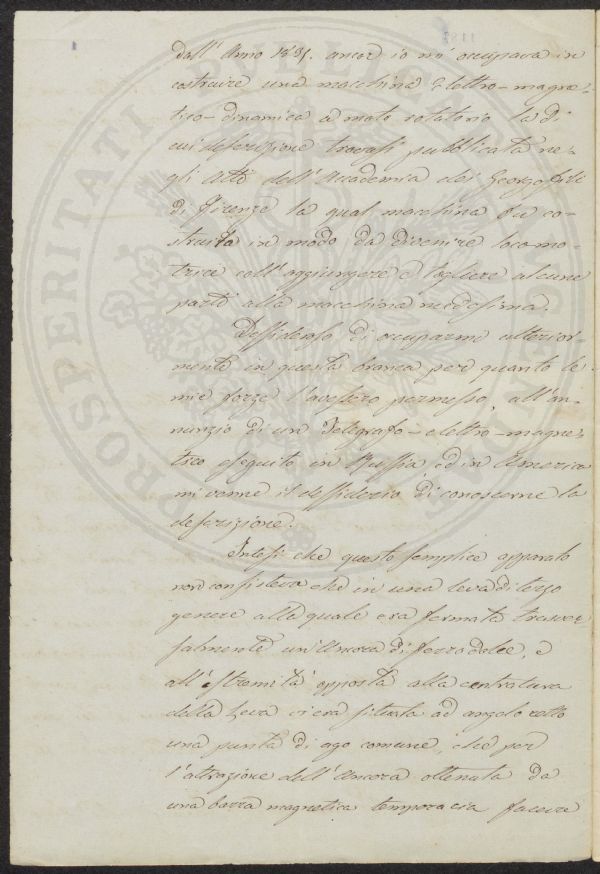 dall'Anno 1831. ancor io m'occupava in
costruire una macchina Elettro-magne-
tico-dinamica a moto rotatorio la di
cui descrizione trovasi pubblicata ne-
gli Atti dell'Accademia dei Georgofili
di Firenze la qual macchina fu co-
struita in modo da divenire loco-mo-
trice coll'aggiungere e togliere alcune
parti alla macchina medesima.
Dessideroso di occuparmi ulterior-
mente in questa branca per quanto le
mie forze l'avessero permesso, all'an-
nunzio di un Telegrafo-elettro-magne-
tico eseguito in Russia, ed in America
mi venne il dessiderio di conoscerne la
descrizione.
Intesi che questo semplice apparato
non consisteva che in una leva di terzo
genere alla quale era fermata trasver
salmente un'Ancora di ferro dolce, e
all'estremità opposta alla centratura
della Leva vi era situata ad angolo retto
una punta di ago comune, che per
l'attrazione dell'Ancora ottenuta da
una barra magnetica temporaria faceva
PROSPERITATI